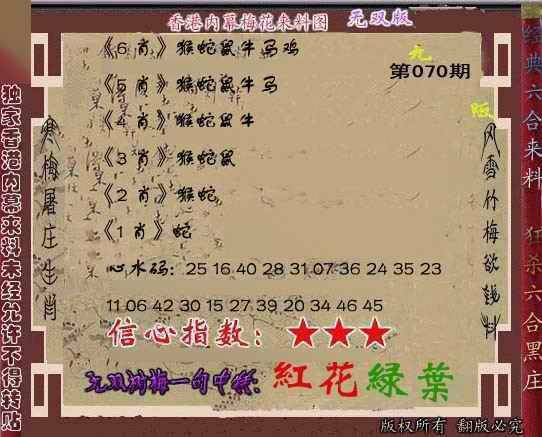 香港内幕梅花来料图 无双版
《6 肖》猴蛇鼠牛马鸡
无
第070期
《5 肖》猴蛇鼠牛马
版
《4 肖》猴蛇鼠牛
《3 肖》猴蛇鼠
《2 肖》猴蛇
《1 肖》蛇
心水码: 25 16 40 28 31 07 36 24 35 23
11 06 42 30 15 27 39 20 34 46 45
信心指数: ★★★
无双洞梅一句中特: 紅花綠葉
独家香港内幕来料未经允许不得转贴
寒梅屠庄生肖
风雪竹梅欲钱料
经典六合来料 狂杀六合黑庄
版权所有 翻版必究